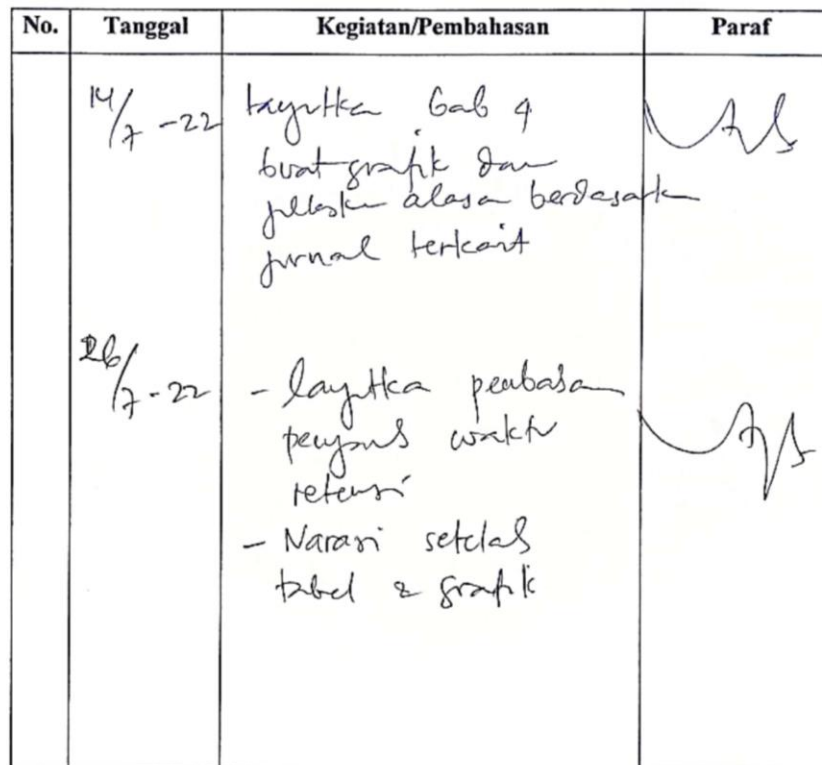 No. Tanggal Kegiatan/Pembahasan Paraf
14/7-22 Lanjutka bab 4
buat grafik dan
jelaska alasa berdasark
jurnal terkait
26/7-22 - lanjutka pembasan
pengaruh waktu
retensi
- Narasi setelah
tabel & grafik